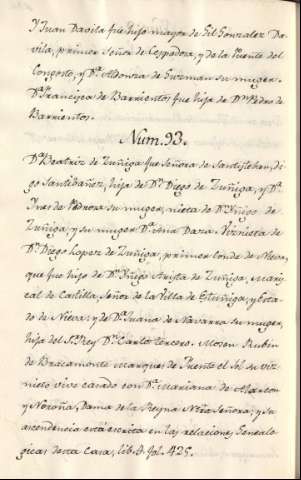 Y Juan Davila fue hijo mayor de Gil Gonzalez Da-
vila, primer Señor de Cespedosa, y de la Puente del
Congosto, y Dª Aldonza de Guzman su muger.
Dª Francisca de Barrientos fue hija de Dn. Pedro de
Barrientos.
Num. 93.
Dª Beatriz de Zuñiga fue Señora de Santisteban, di-
go Santibañez, hija de Dn. Diego de Zuñiga, y Dª
Ines de Pedrosa su muger, nieta de Dn. Yñigo de
Zuñiga, y su muger Dª Ana Daza. Viznieta de
Dn. Diego Lopez de Zuñiga, primer Conde de Nieva,
que fue hijo de Dn. Yñigo Arista de Zuñiga, Maris-
cal de Castilla, Señor de la Villa de Estuñiga, y Esta-
do de Nieva, y de Dª Juana de Navarra su muger,
hija del S. Rey Dn. Carlos tercero. Mosen Rubin
de Bracamonte Marques de Fuente el Sol su viz-
nieto vive casado con Dª Mariana de Alarcon
y Noroña, Dama de la Reyna Ntra Señora; y su
ascendencia está escrita en las relaciones Genealo-
gicas desta Casa, lib. fol. 425.